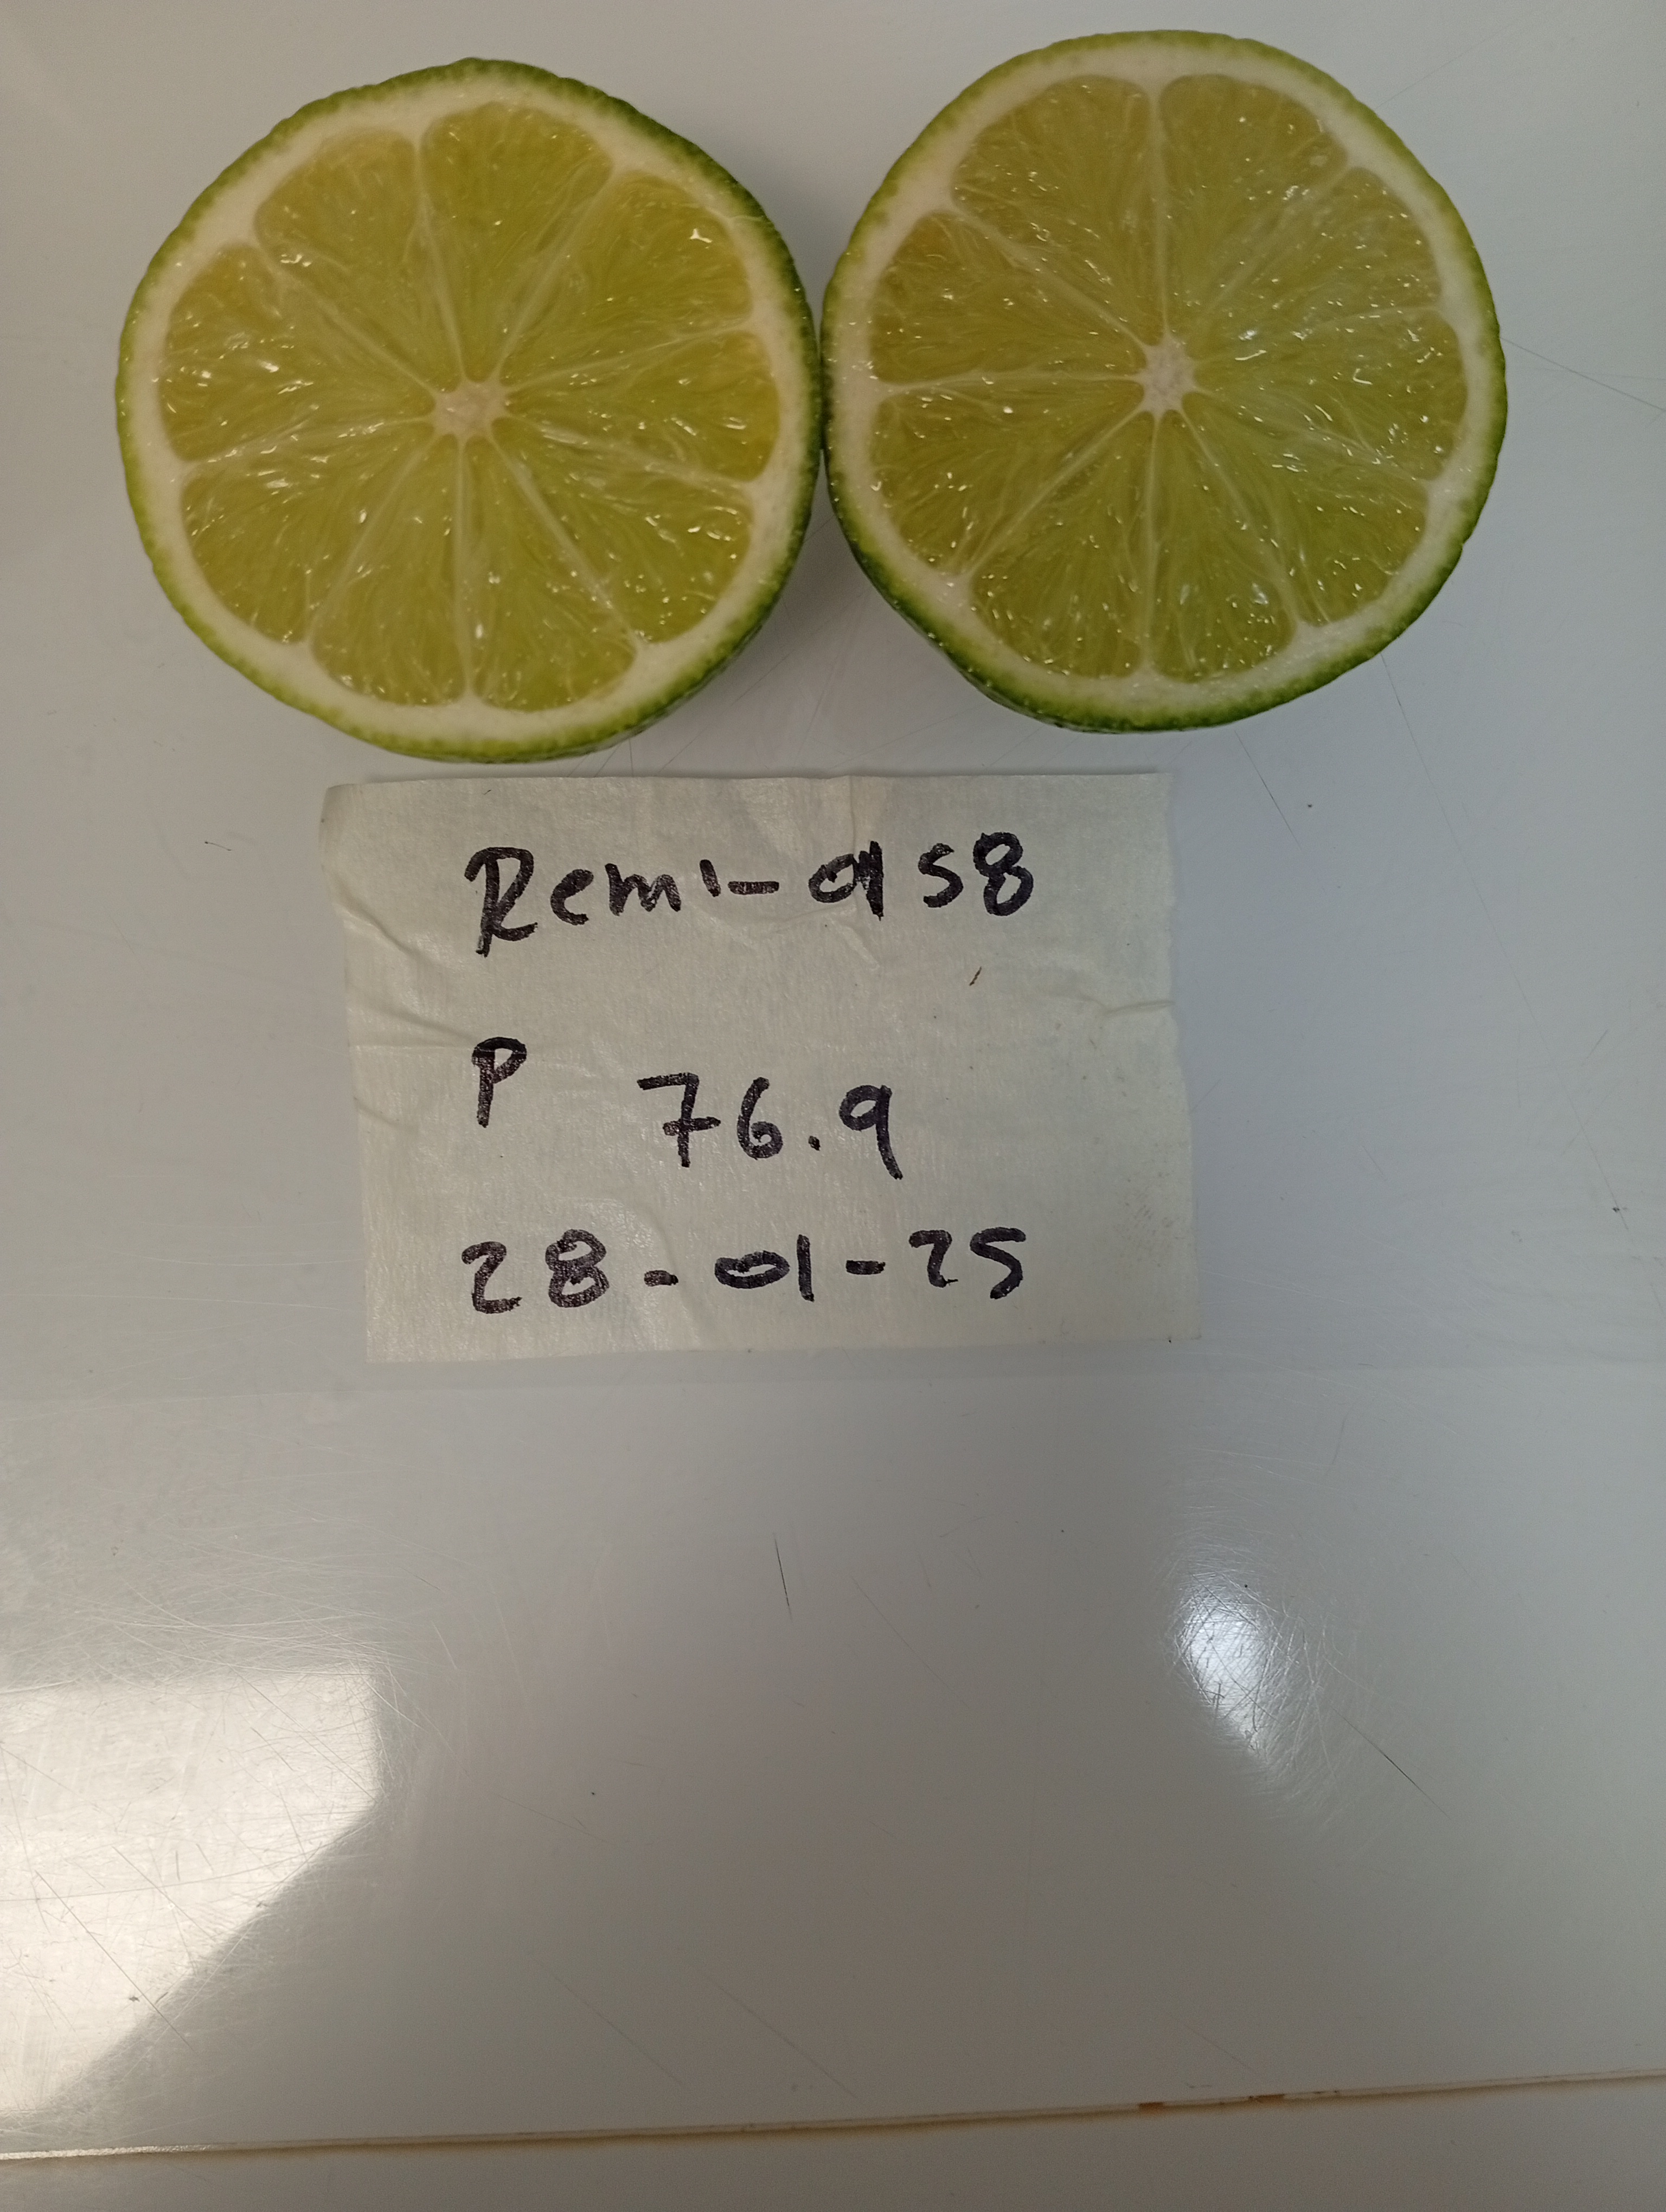 Remi-0158
P 76.9
28-01-25